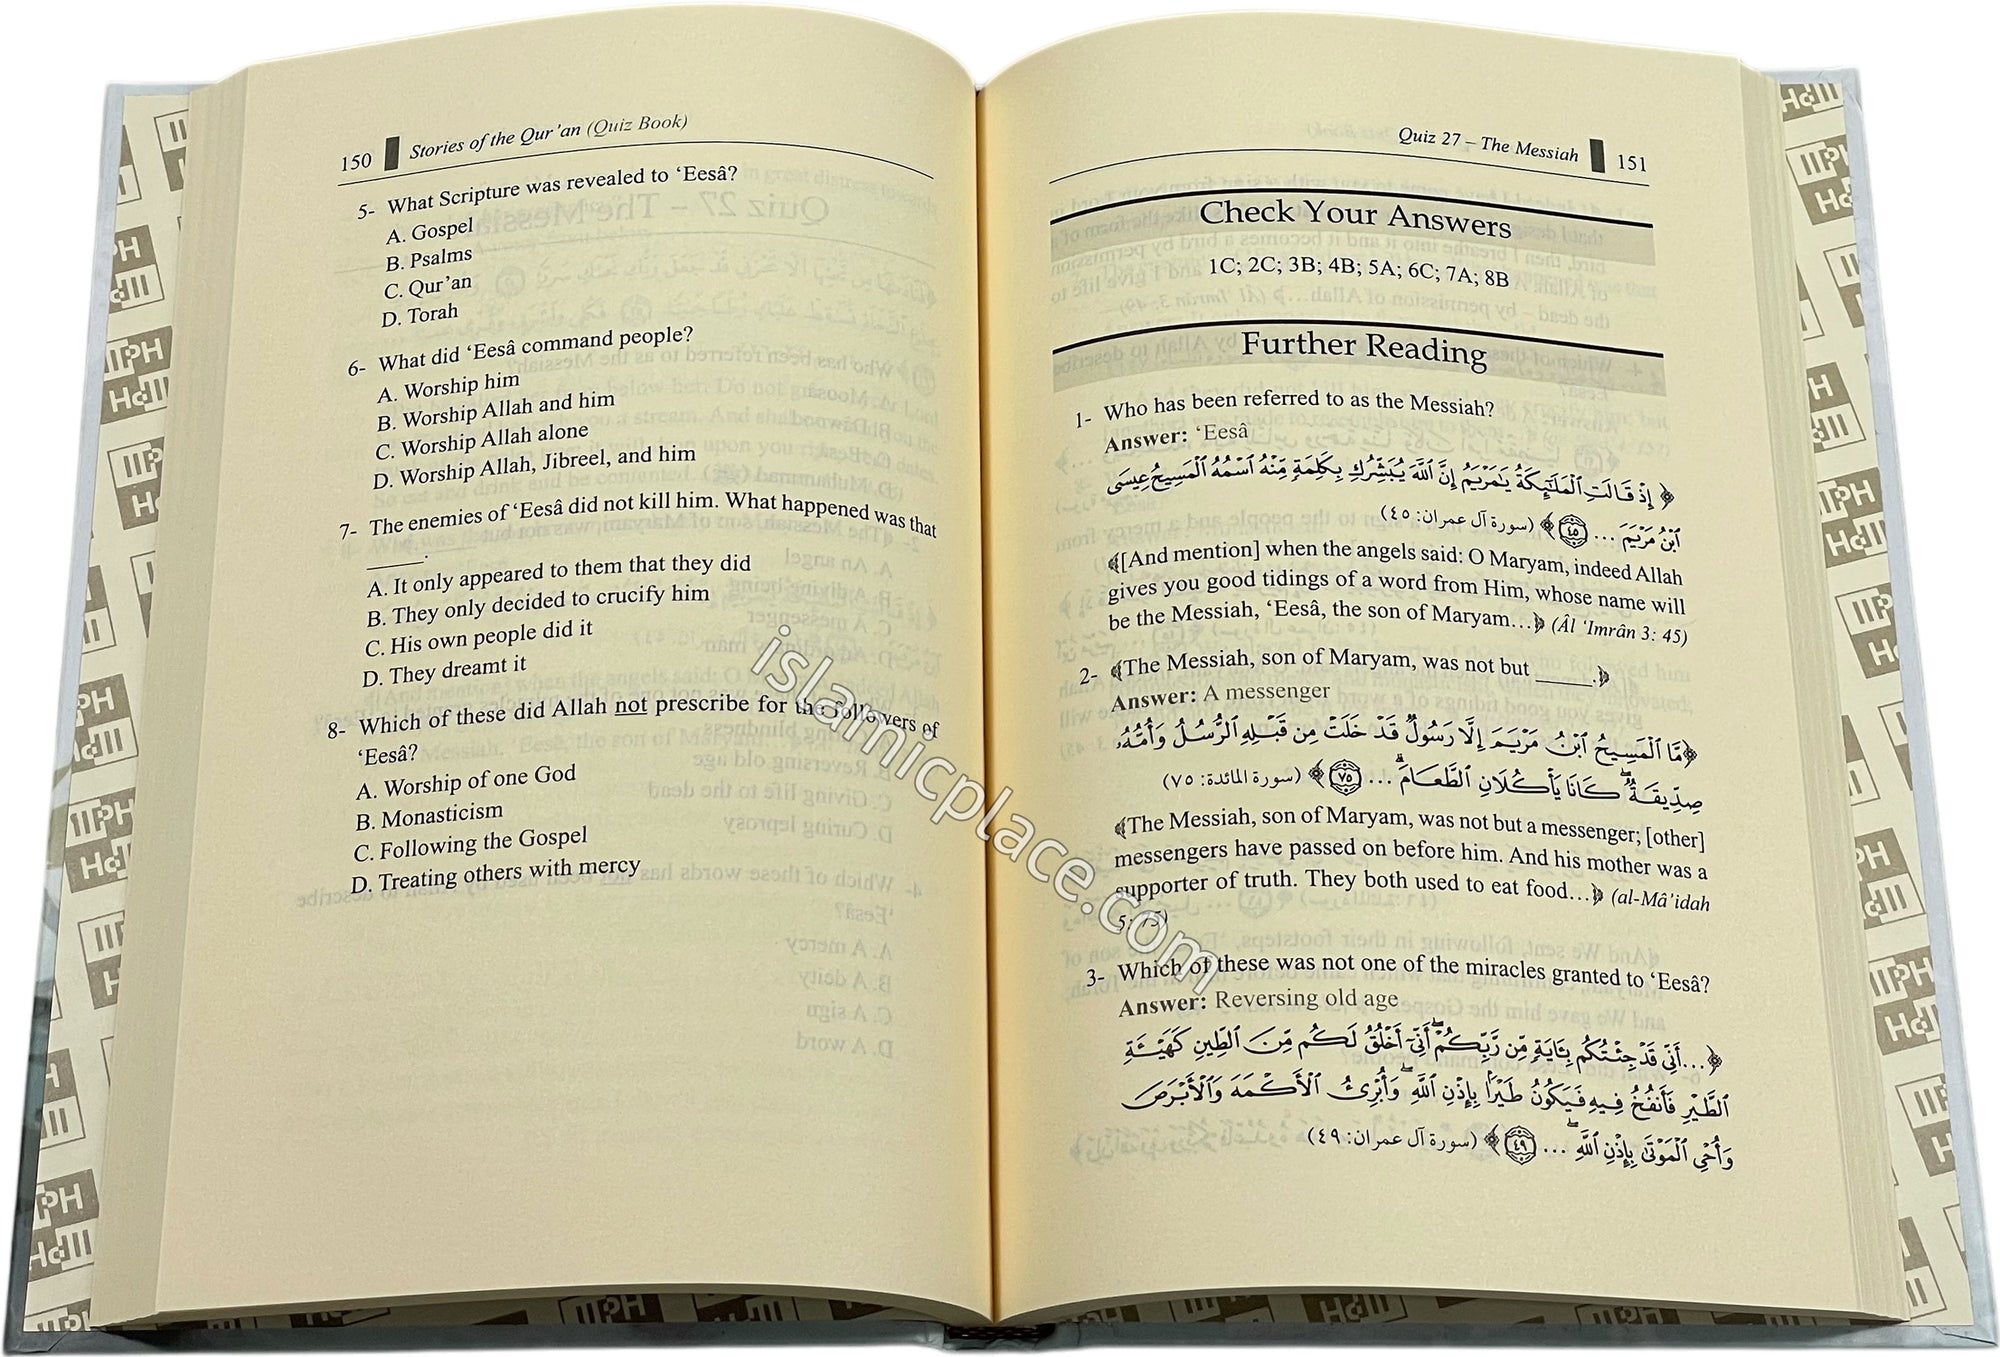 150 Stories of the Qur'an (Quiz Book)
5- What Scripture was revealed to ‘Eesâ?
A. Gospel
B. Psalms
C. Qur’an
D. Torah
6- What did ‘Eesâ command people?
A. Worship him
B. Worship Allah and him
C. Worship Allah alone
D. Worship Allah, Jibreel, and him
7- The enemies of ‘Eesâ did not kill him. What happened was that
_____.
A. It only appeared to them that they did
B. They only decided to crucify him
C. His own people did it
D. They dreamt it
8- Which of these did Allah not prescribe for the followers of
‘Eesâ?
A. Worship of one God
B. Monasticism
C. Following the Gospel
D. Treating others with mercy
Quiz 27 – The Messiah 151
Check Your Answers
1C; 2C; 3B; 4B; 5A; 6C; 7A; 8B
Further Reading
1- Who has been referred to as the Messiah?
Answer: ‘Eesâ
﴿إِذْ قَالَتِ ٱلْمَلَٰٓئِكَةُ يَٰمَرْيَمُ إِنَّ ٱللَّهَ يُبَشِّرُكِ بِكَلِمَةٍ مِّنْهُ ٱسْمُهُ ٱلْمَسِيحُ عِيسَى
ٱبْنُ مَرْيَمَ ... ۝٤٥﴾ (سورة آل عمران: ٤٥)
﴾[And mention] when the angels said: O Maryam, indeed Allah
gives you good tidings of a word from Him, whose name will
be the Messiah, ‘Eesâ, the son of Maryam...﴿ (Âl ‘Imrân 3: 45)
2- ﴾The Messiah, son of Maryam, was not but _____.﴿
Answer: A messenger
﴿مَّا ٱلْمَسِيحُ ٱبْنُ مَرْيَمَ إِلَّا رَسُولٌ قَدْ خَلَتْ مِن قَبْلِهِ ٱلرُّسُلُ وَأُمُّهُۥ
صِدِّيقَةٌ ۖ كَانَا يَأْكُلَانِ ٱلطَّعَامَ ۗ ... ۝٧٥﴾ (سورة المائدة: ٧٥)
﴾The Messiah, son of Maryam, was not but a messenger; [other]
messengers have passed on before him. And his mother was a
supporter of truth. They both used to eat food...﴿ (al-Mâ’idah
5: 75)
3- Which of these was not one of the miracles granted to ‘Eesâ?
Answer: Reversing old age
﴿...أَنِّى قَدْ جِئْتُكُم بِـَٔايَةٍ مِّن رَّبِّكُمْ ۖ أَنِّىٓ أَخْلُقُ لَكُم مِّنَ ٱلطِّينِ كَهَيْـَٔةِ
ٱلطَّيْرِ فَأَنفُخُ فِيهِ فَيَكُونُ طَيْرًۢا بِإِذْنِ ٱللَّهِ ۖ وَأُبْرِئُ ٱلْأَكْمَهَ وَٱلْأَبْرَصَ
وَأُحْىِ ٱلْمَوْتَىٰ بِإِذْنِ ٱللَّهِ ۖ ... ۝٤٩﴾ (سورة آل عمران: ٤٩)
islamicplace.com